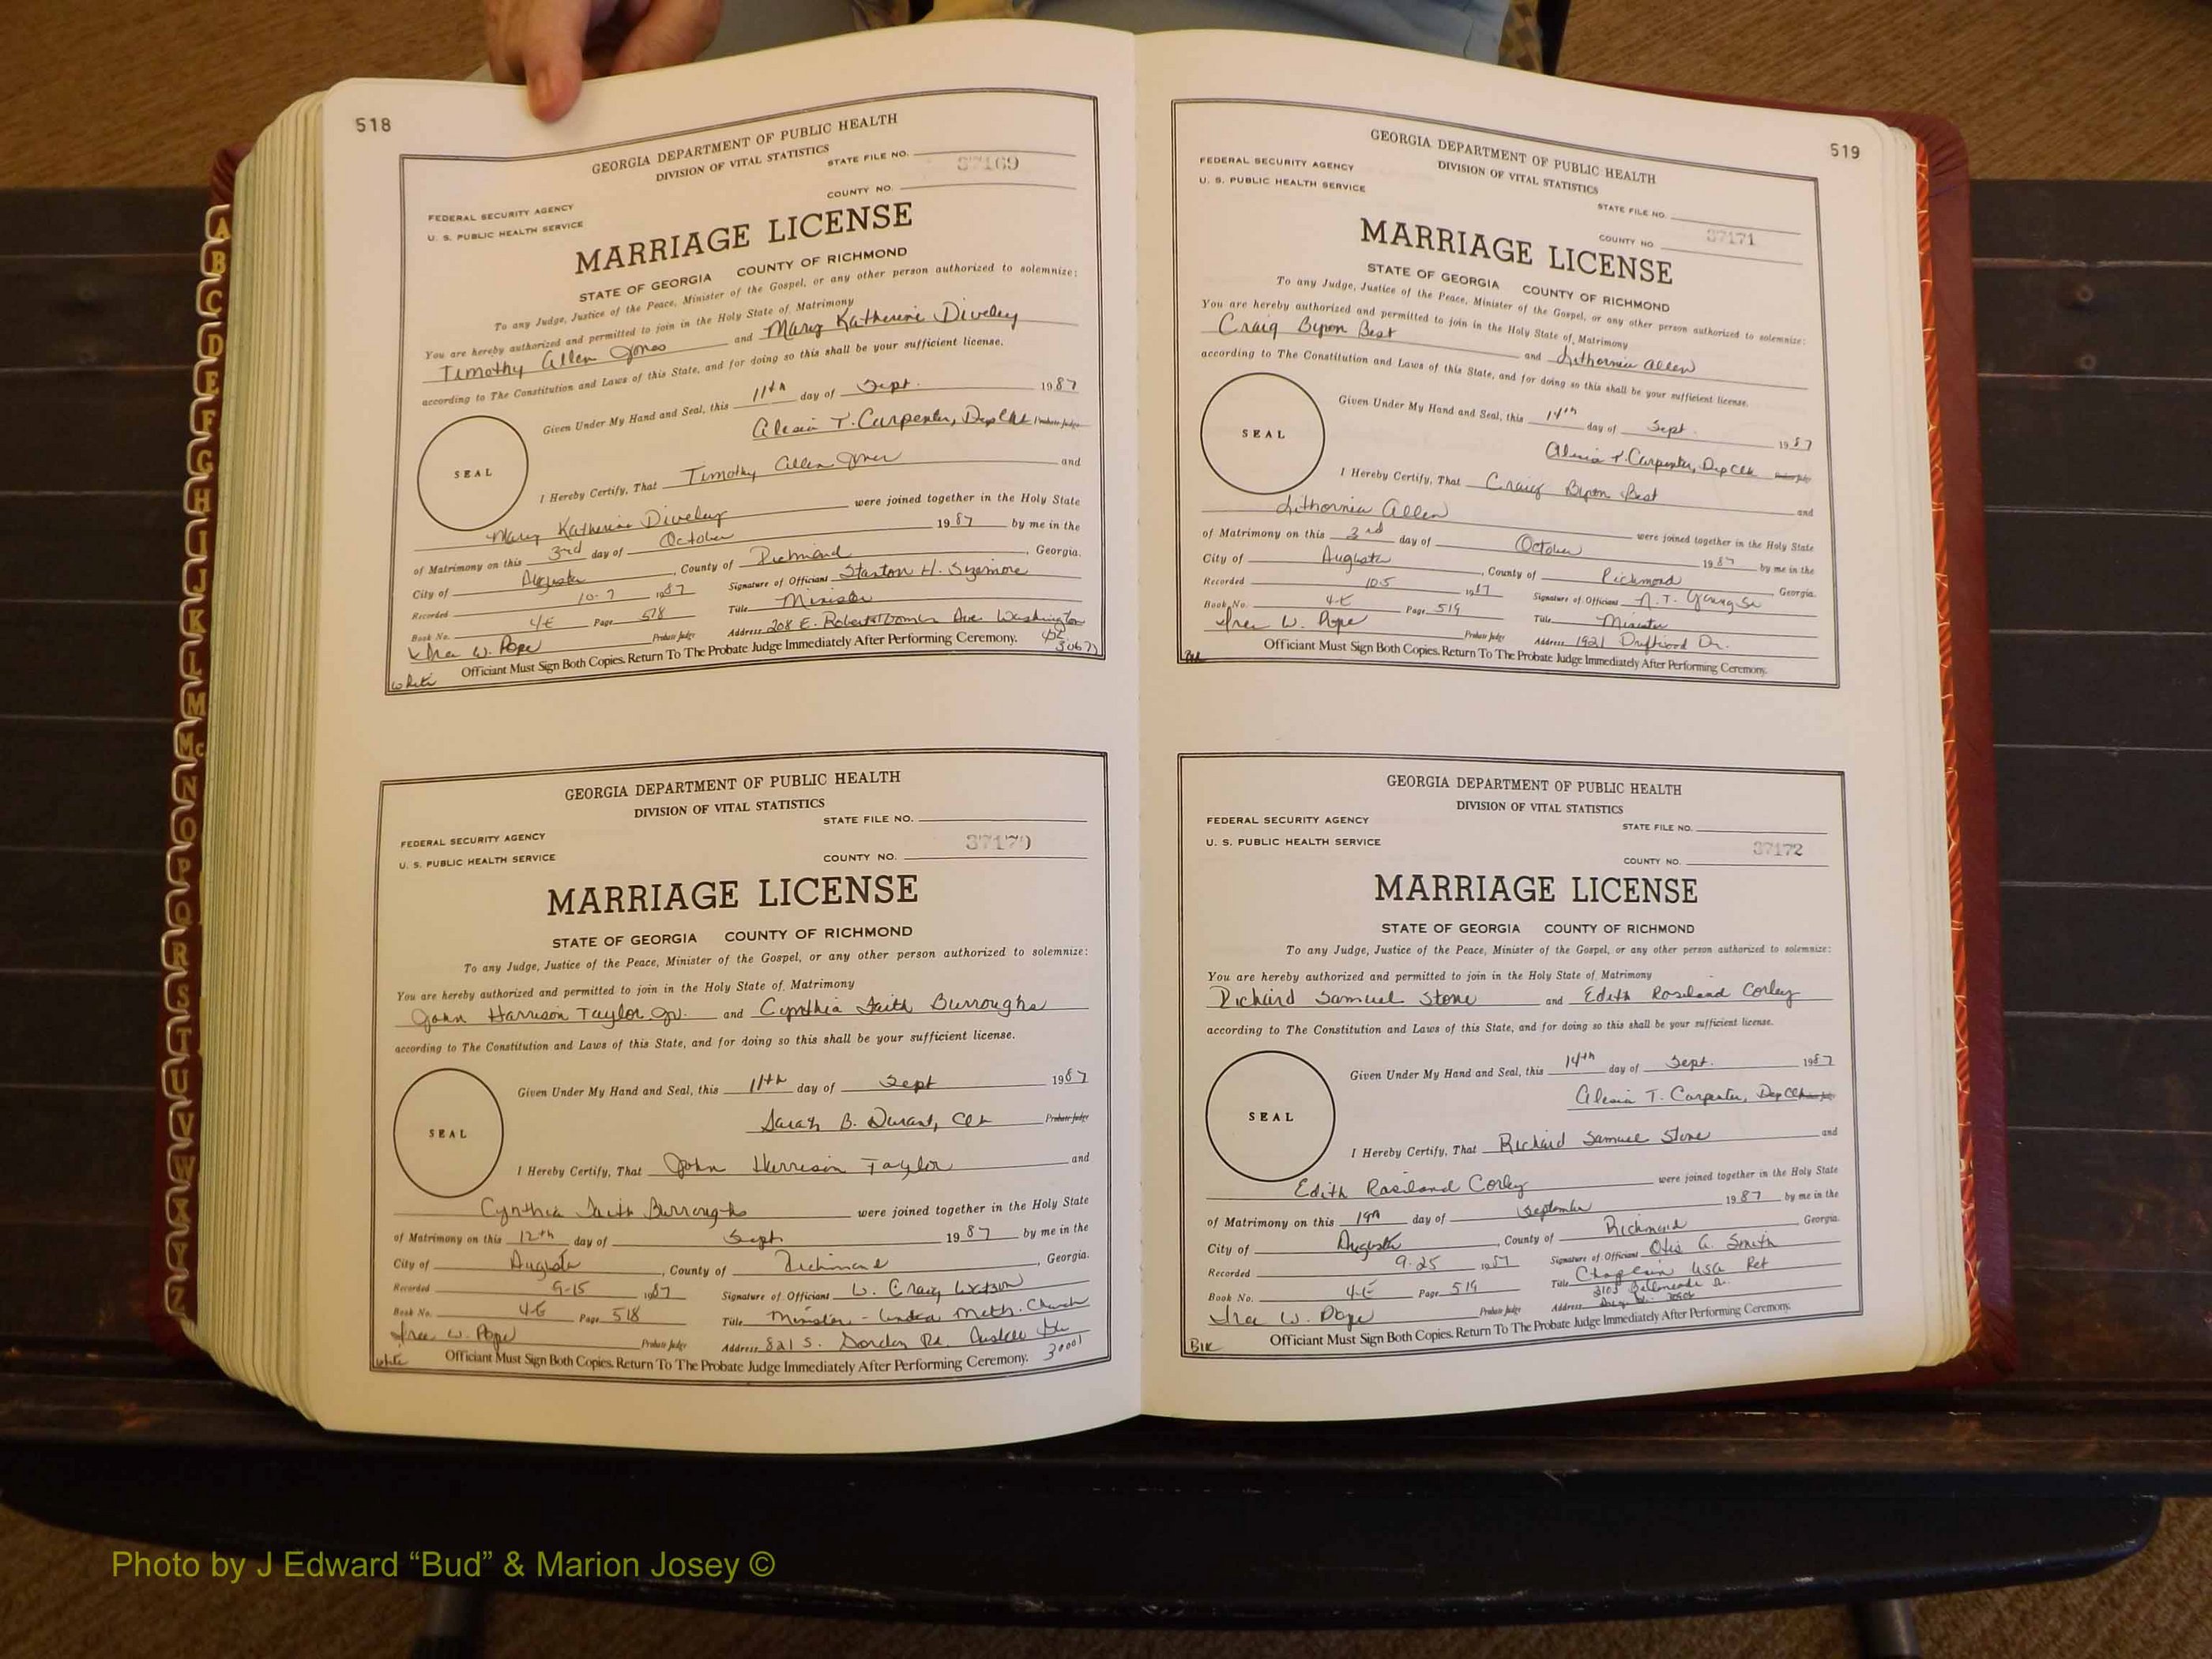 518
GEORGIA DEPARTMENT OF PUBLIC HEALTH
DIVISION OF VITAL STATISTICS
STATE FILE NO. 37169
COUNTY NO.
FEDERAL SECURITY AGENCY
U. S. PUBLIC HEALTH SERVICE
MARRIAGE LICENSE
STATE OF GEORGIA COUNTY OF RICHMOND
To any Judge, Justice of the Peace, Minister of the Gospel, or any other person authorized to solemnize:
You are hereby authorized and permitted to join in the Holy State of Matrimony
Timothy Allen Jones and Mary Katherine Diveley
according to The Constitution and Laws of this State, and for doing so this shall be your sufficient license.
Given Under My Hand and Seal, this 11th day of Sept. 1987
Alesia T. Carpenter, Dep Clk Probate Judge
SEAL
I Hereby Certify, That Timothy Allen Jones and
Mary Katherine Diveley were joined together in the Holy State
of Matrimony on this 3rd day of October 1987 by me in the
City of Augusta, County of Richmond, Georgia.
Recorded 10-7 1987 Signature of Officiant Stanton H. Sizemore
Book No. 4E Page 518 Title Minister
Ira W. Pope Probate Judge Address 208 E. Robert Toombs Ave. Washington
30673
Officiant Must Sign Both Copies. Return To The Probate Judge Immediately After Performing Ceremony.
White
GEORGIA DEPARTMENT OF PUBLIC HEALTH
DIVISION OF VITAL STATISTICS
STATE FILE NO.
FEDERAL SECURITY AGENCY
U. S. PUBLIC HEALTH SERVICE
COUNTY NO. 37170
MARRIAGE LICENSE
STATE OF GEORGIA COUNTY OF RICHMOND
To any Judge, Justice of the Peace, Minister of the Gospel, or any other person authorized to solemnize:
You are hereby authorized and permitted to join in the Holy State of Matrimony
John Harrison Taylor Jr. and Cynthia Faith Burroughs
according to The Constitution and Laws of this State, and for doing so this shall be your sufficient license.
Given Under My Hand and Seal, this 11th day of Sept 1987
Sarah B. Durant, Clk Probate Judge
SEAL
I Hereby Certify, That John Harrison Taylor and
Cynthia Faith Burroughs were joined together in the Holy State
of Matrimony on this 12th day of Sept. 1987 by me in the
City of Augusta, County of Richmond, Georgia.
Recorded 9-15 1987 Signature of Officiant W. Craig Watson
Book No. 4-E Page 518 Title Minister - United Meth. Church
Ira W. Pope Probate Judge Address 821 S. Gordon Rd. Austell Ga
30001
Officiant Must Sign Both Copies. Return To The Probate Judge Immediately After Performing Ceremony.
White
519
GEORGIA DEPARTMENT OF PUBLIC HEALTH
DIVISION OF VITAL STATISTICS
FEDERAL SECURITY AGENCY
U. S. PUBLIC HEALTH SERVICE
STATE FILE NO.
COUNTY NO. 37171
MARRIAGE LICENSE
STATE OF GEORGIA COUNTY OF RICHMOND
To any Judge, Justice of the Peace, Minister of the Gospel, or any other person authorized to solemnize:
You are hereby authorized and permitted to join in the Holy State of Matrimony
Craig Byron Best and Lithornia Allen
according to The Constitution and Laws of this State, and for doing so this shall be your sufficient license.
Given Under My Hand and Seal, this 14th day of Sept. 1987
Alesia T. Carpenter, Dep Clk Probate Judge
SEAL
I Hereby Certify, That Craig Byron Best and
Lithornia Allen were joined together in the Holy State
of Matrimony on this 3rd day of October 1987 by me in the
City of Augusta, County of Richmond Georgia.
Recorded 10-5 1987 Signature of Officiant N. T. Young Sr
Book No. 4-E Page 519 Title Minister
Ira W. Pope Probate Judge Address 1921 Driftwood Dr.
Officiant Must Sign Both Copies. Return To The Probate Judge Immediately After Performing Ceremony.
GEORGIA DEPARTMENT OF PUBLIC HEALTH
DIVISION OF VITAL STATISTICS
FEDERAL SECURITY AGENCY
STATE FILE NO.
U. S. PUBLIC HEALTH SERVICE
COUNTY NO. 37172
MARRIAGE LICENSE
STATE OF GEORGIA COUNTY OF RICHMOND
To any Judge, Justice of the Peace, Minister of the Gospel, or any other person authorized to solemnize:
You are hereby authorized and permitted to join in the Holy State of Matrimony
Richard Samuel Stone and Edith Rosiland Corley
according to The Constitution and Laws of this State, and for doing so this shall be your sufficient license.
Given Under My Hand and Seal, this 14th day of Sept. 1987
Alesia T. Carpenter, Dep Clk
SEAL
I Hereby Certify, That Richard Samuel Stone and
Edith Rosiland Corley were joined together in the Holy State
of Matrimony on this 19th day of September 1987 by me in the
City of Augusta, County of Richmond, Georgia.
Recorded 9-25 1987 Signature of Officiant Otis A. Smith
Book No. 4-E Page 519 Title Chaplain USA Ret
Ira W. Pope Probate Judge Address 3103
Officiant Must Sign Both Copies. Return To The Probate Judge Immediately After Performing Ceremony.
Blk
A
B
C
D
E
F
G
H
I
J
K
L
M
Mc
N
O
P
Q
R
S
T
U
V
W
X
Y
Z
Photo by J Edward “Bud” & Marion Josey ©